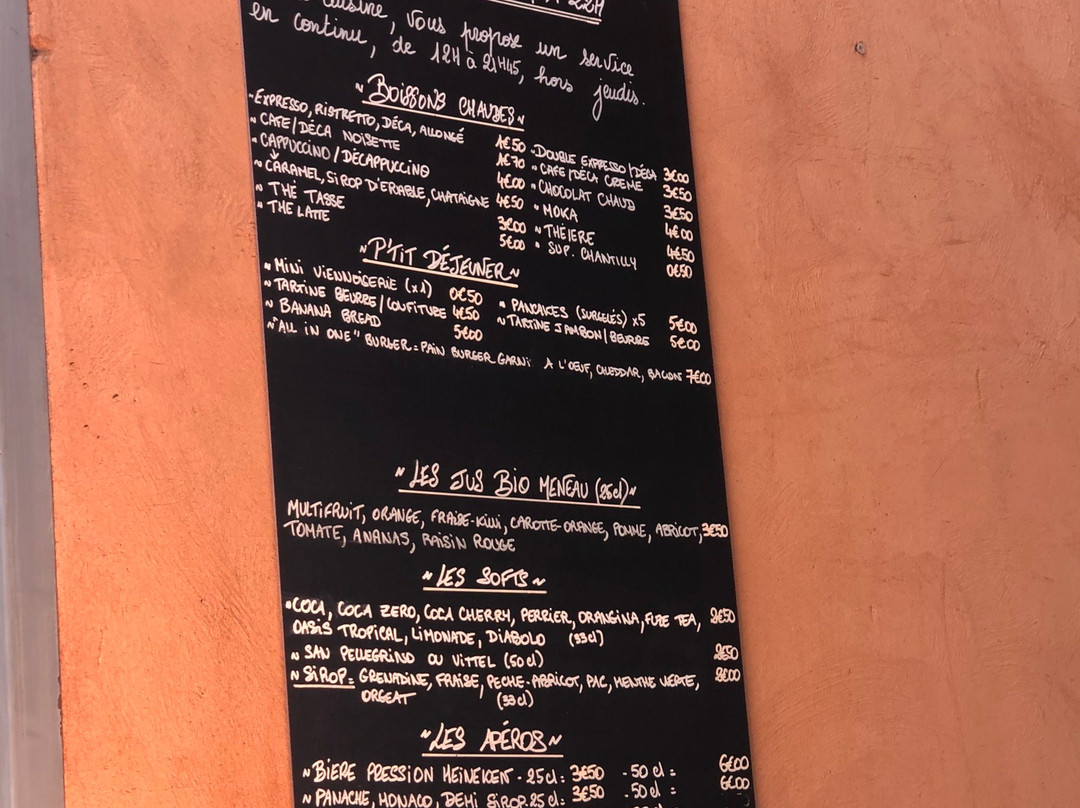 22H
cuisine, vous propose un service
en continu, de 12H à 21H45, hors jeudis.
~ BOISSONS CHAUDES ~
~ EXPRESSO, RISTRETTO, DÉCA, ALLONGÉ 1€50
~ CAFE/DÉCA NOISETTE 1€70
~ CAPPUCCINO/DÉCAPPUCCINO 4€00
~ CARAMEL, SIROP D'ERABLE, CHATAIGNE 4€50
~ THE TASSE 3€00
~ THE LATTE 5€00
~ DOUBLE EXPRESSO/DÉCA 3€00
~ CAFE/DÉCA CREME 3€50
~ CHOCOLAT CHAUD 3€50
~ MOKA 4€00
~ THÉIERE 4€50
~ SUP. CHANTILLY 0€50
~ P'TIT DÉJEUNER ~
~ MINI VIENNOISERIE (x1) 0€50
~ TARTINE BEURRE/CONFITURE 4€50
~ BANANA BREAD 5€00
~ PANCAKES (SURGELÉS) x5 5€00
~ TARTINE JAMBON/BEURRE 5€00
~ "ALL IN ONE" BURGER = PAIN BURGER GARNI A L'OEUF, CHEDDAR, BACON 7€00
~ LES JUS BIO MENEAU (25cl) ~
MULTIFRUIT, ORANGE, FRAISE-KIWI, CAROTTE-ORANGE, POMME, ABRICOT, 3€50
TOMATE, ANANAS, RAISIN ROUGE
~ LES SOFTS ~
~ COCA, COCA ZERO, COCA CHERRY, PERRIER, ORANGINA, FUZE TEA, 2€50
OASIS TROPICAL, LIMONADE, DIABOLO (33cl)
~ SAN PELLEGRINO OU VITTEL (50cl) 2€50
~ SIROP = GRENADINE, FRAISE, PECHE-ABRICOT, PAC, MENTHE VERTE, 2€00
ORGEAT (33cl)
~ LES APÉROS ~
~ BIERE PRESSION HEINEKEN - 25cl: 3€50 - 50 cl = 6€00
~ PANACHE, MONACO, DEMI SIROP. 25 cl: 3€50 . 50 cl : 6€00